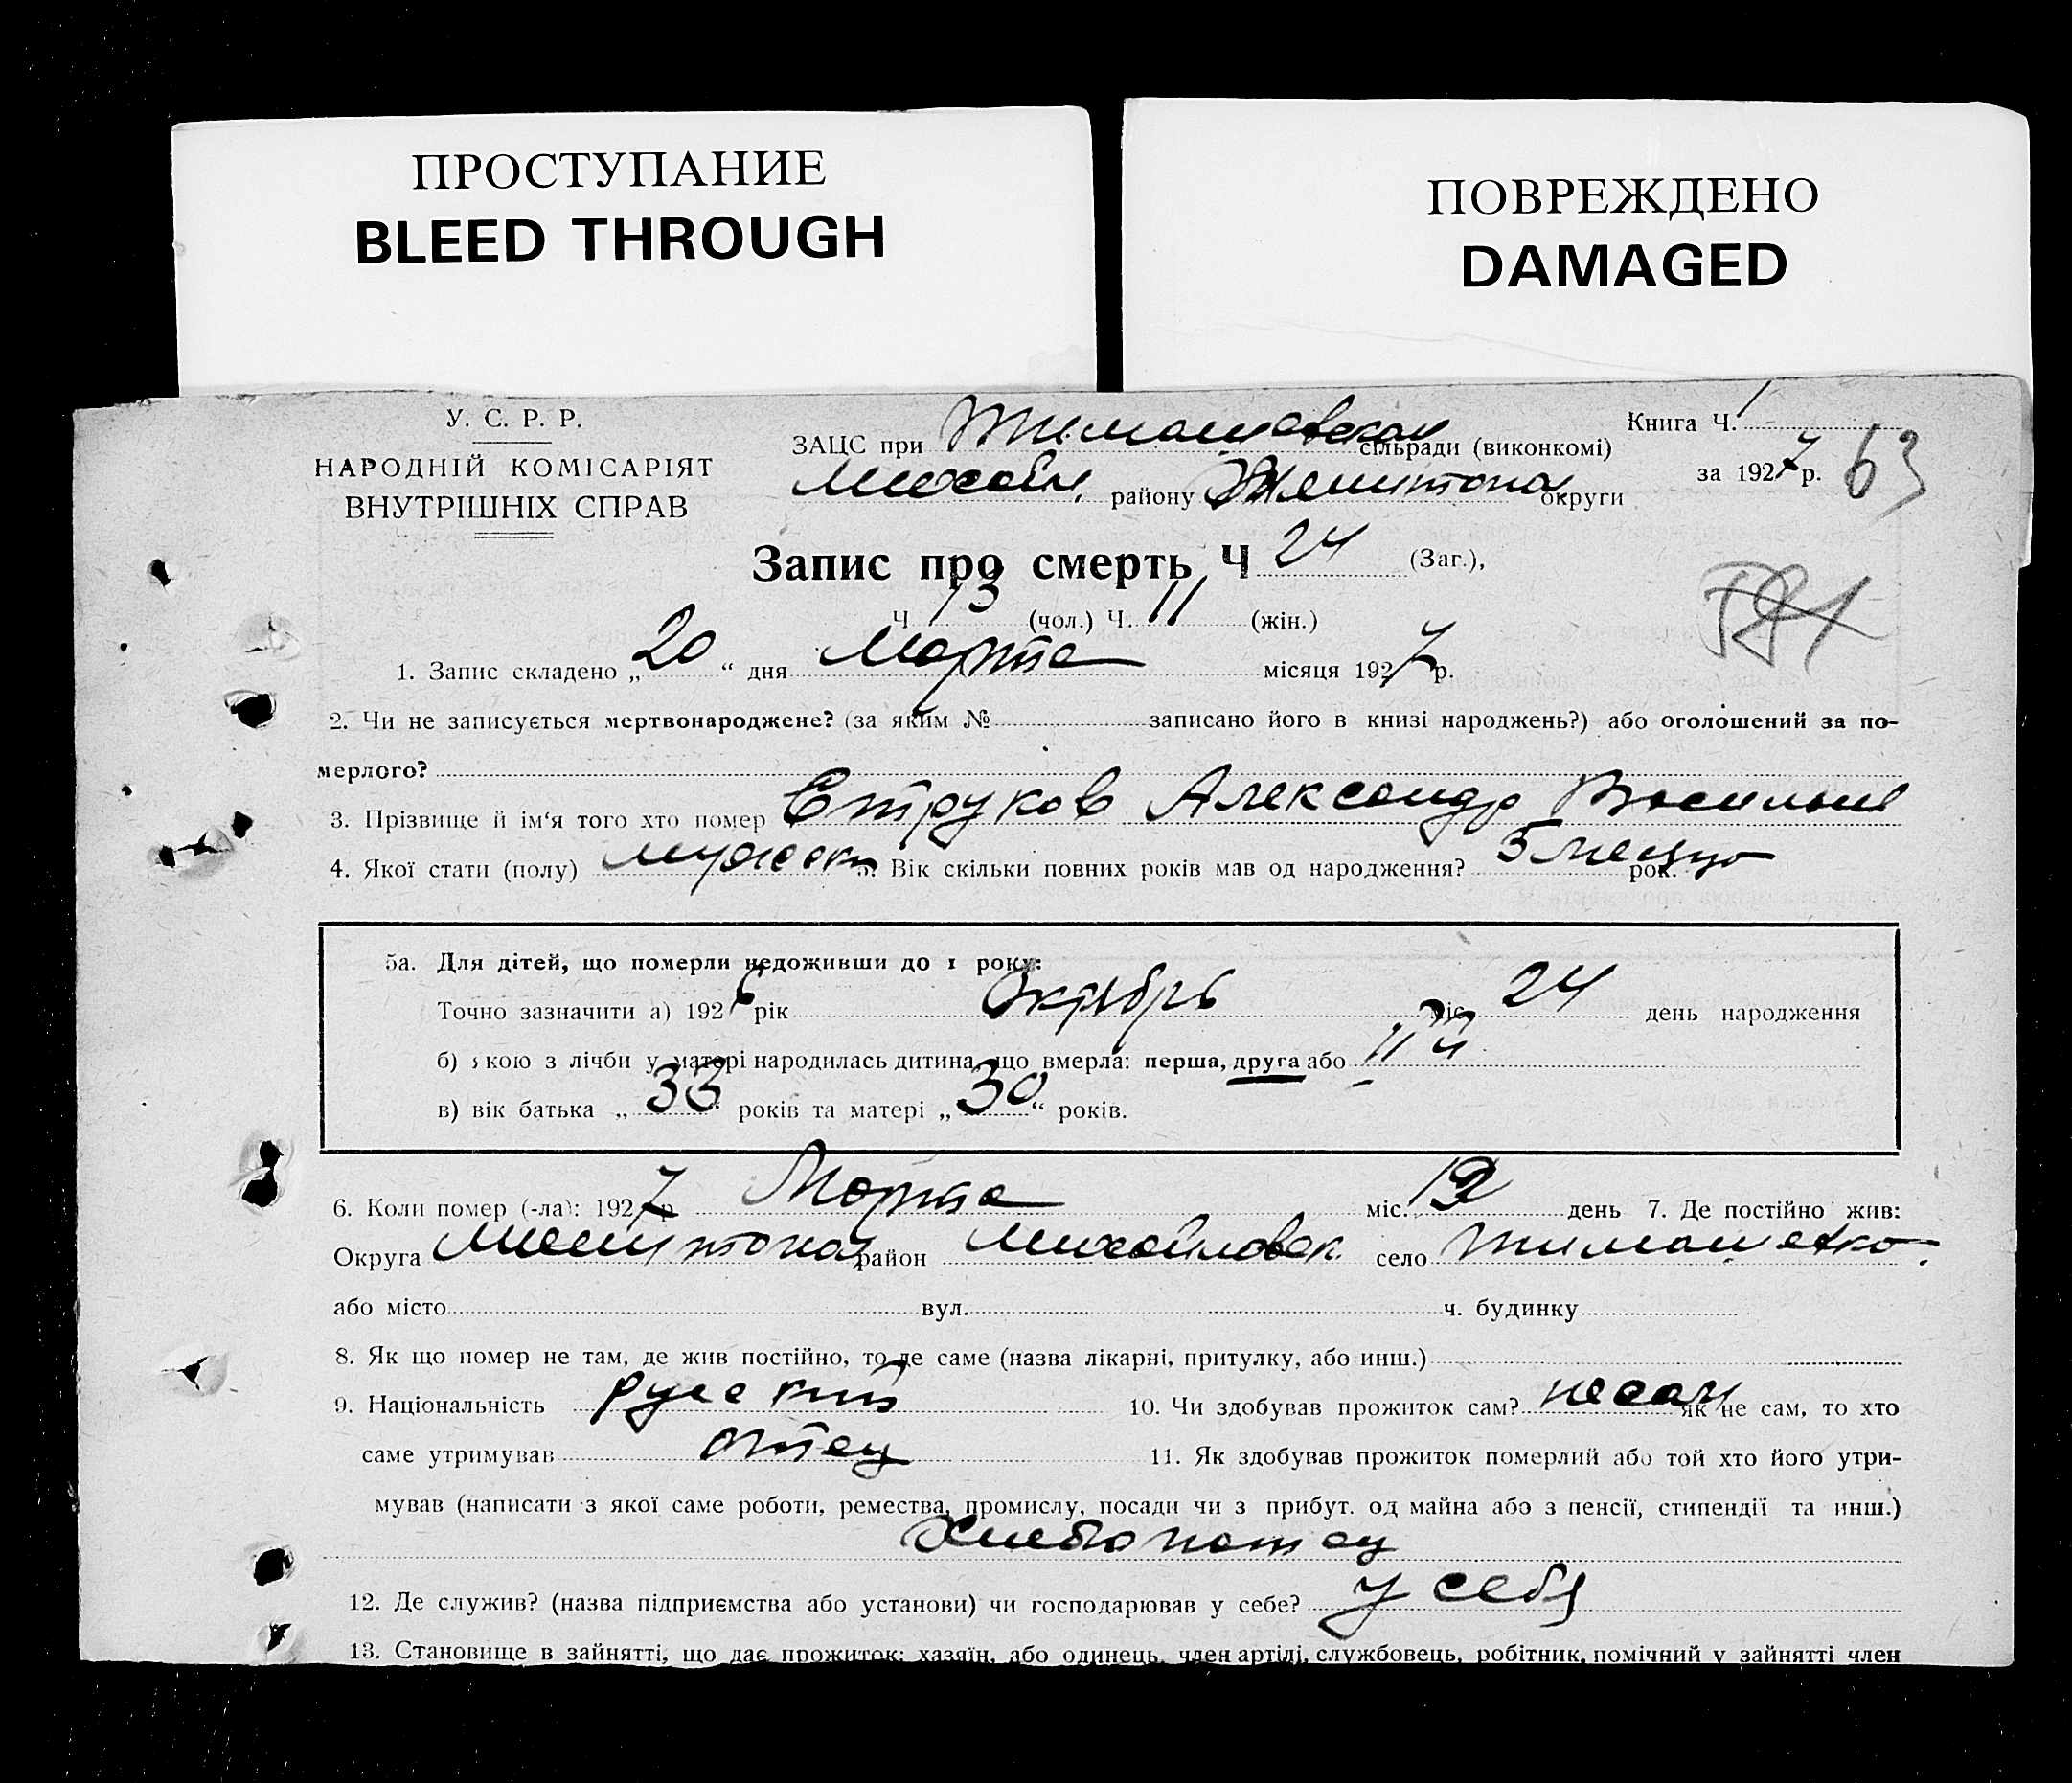 ПРОСТУПАНИЕ
BLEED THROUGH
ПОВРЕЖДЕНО
DAMAGED
У. С. Р. Р.
НАРОДНІЙ КОМІСАРІЯТ
ВНУТРІШНІХ СПРАВ
ЗАЦС при Тимашевской сільради (виконкомі)
Михайл. району Мелитопол округи
Книга Ч. 1
за 1927 р. 63
Запис про смерть Ч 24 (Заг.),
Ч 13 (чол.) Ч. 11 (жін.)
1. Запис складено „20“ дня Марта місяця 1927 р.
2. Чи не записується мертвонароджене? (за яким № записано його в книзі народжень?) або оголошений за по-
мерлого?
3. Прізвище й ім'я того хто помер Струков Александр Васильев
4. Якої стати (полу) мужеск 5. Вік скільки повних років мав од народження? 5 месяц рок.
5а. Для дітей, що померли недоживши до 1 року:
Точно зазначити а) 1926 рік Октябрь міс. 24 день народження
б) якою з лічби у матері народилась дитина, що вмерла: перша, друга або II й
в) вік батька „33“ років та матері „30“ років.
6. Коли помер (-ла): 1927 р. Марта міс. 19 день 7. Де постійно жив:
Округа Мелитопол район Михайловск. село Тимашевко
або місто вул. ч. будинку
8. Як що помер не там, де жив постійно, то де саме (назва лікарні, притулку, або инш.)
9. Національність руский 10. Чи здобував прожиток сам? несам як не сам, то хто
саме утримував отец 11. Як здобував прожиток померлий або той хто його утри-
мував (написати з якої саме роботи, ремества, промислу, посади чи з прибут. од майна або з пенсії, стипендії та инш.)
Хлебопашец
12. Де служив? (назва підприємства або установи) чи господарював у себе? у себя
13. Становище в зайнятті, що дає прожиток: хазяїн, або одинець, член артілі, службовець, робітник, помічний у зайнятті член